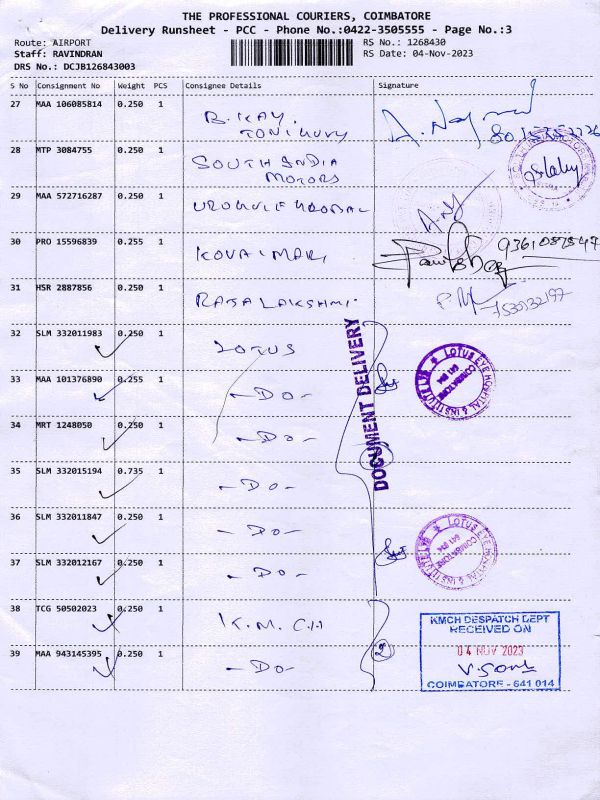 THE PROFESSIONAL COURIERS, COIMBATORE
Delivery Runsheet - PCC - Phone No.:0422-3505555 - Page No.:3
Route: AIRPORT RS No.: 1268430
Staff: RAVINDRAN RS Date: 04-Nov-2023
DRS No.: DCJB126843003
S No Consignment No Weight PCS Consignee Details Signature
27 MAA 106085814 0.250 1 B. KAY.
28 MTP 3084755 0.250 1 SOUTH INDIA
MOTORS
29 MAA 572716287 0.250 1
30 PRO 15596839 0.255 1 KOVAI MARI 9361087547
31 HSR 2887856 0.250 1 RAJALAKSHMI
32 SLM 332011983 0.250 1 LOTUS
DOCUMENT DELIVERY
LOTUS EYE HOSPITAL & INSTITUTE
COIMBATORE
641 014
33 MAA 101376890 0.255 1 - DO -
34 MRT 1248050 0.250 1 - DO -
35 SLM 332015194 0.735 1 - DO -
36 SLM 332011847 0.250 1 - DO -
LOTUS EYE HOSPITAL & INSTITUTE
COIMBATORE
641 014
37 SLM 332012167 0.250 1 - DO -
38 TCG 50502023 0.250 1 K.M.C.H
KMCH DESPATCH DEPT
RECEIVED ON
04 NOV 2023
39 MAA 943145395 0.250 1 - DO - 2
COIMBATORE - 641 014